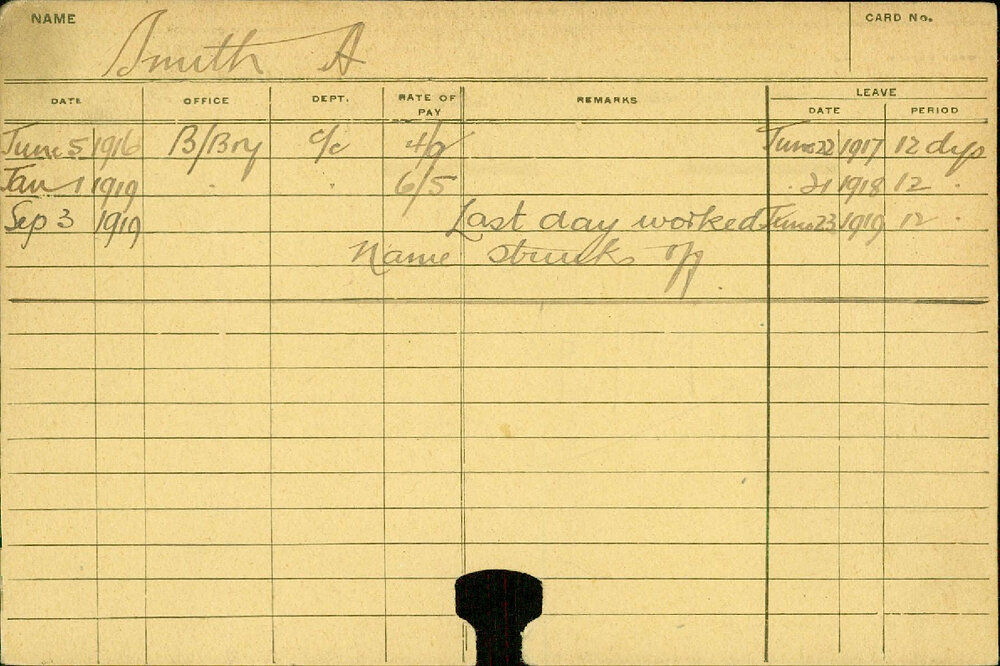 NAME Smith A CARD No.
LEAVE
DATE OFFICE DEPT. RATE OF PAY REMARKS DATE PERIOD
June 5 1916 B/Bry c/c 4/9 June 22 1917 12 dys
Jan 1 1919 " " 6/5 " 21 1918 12 "
Sep 3 1919 Last day worked June 23 1919 12 "
Name struck off.